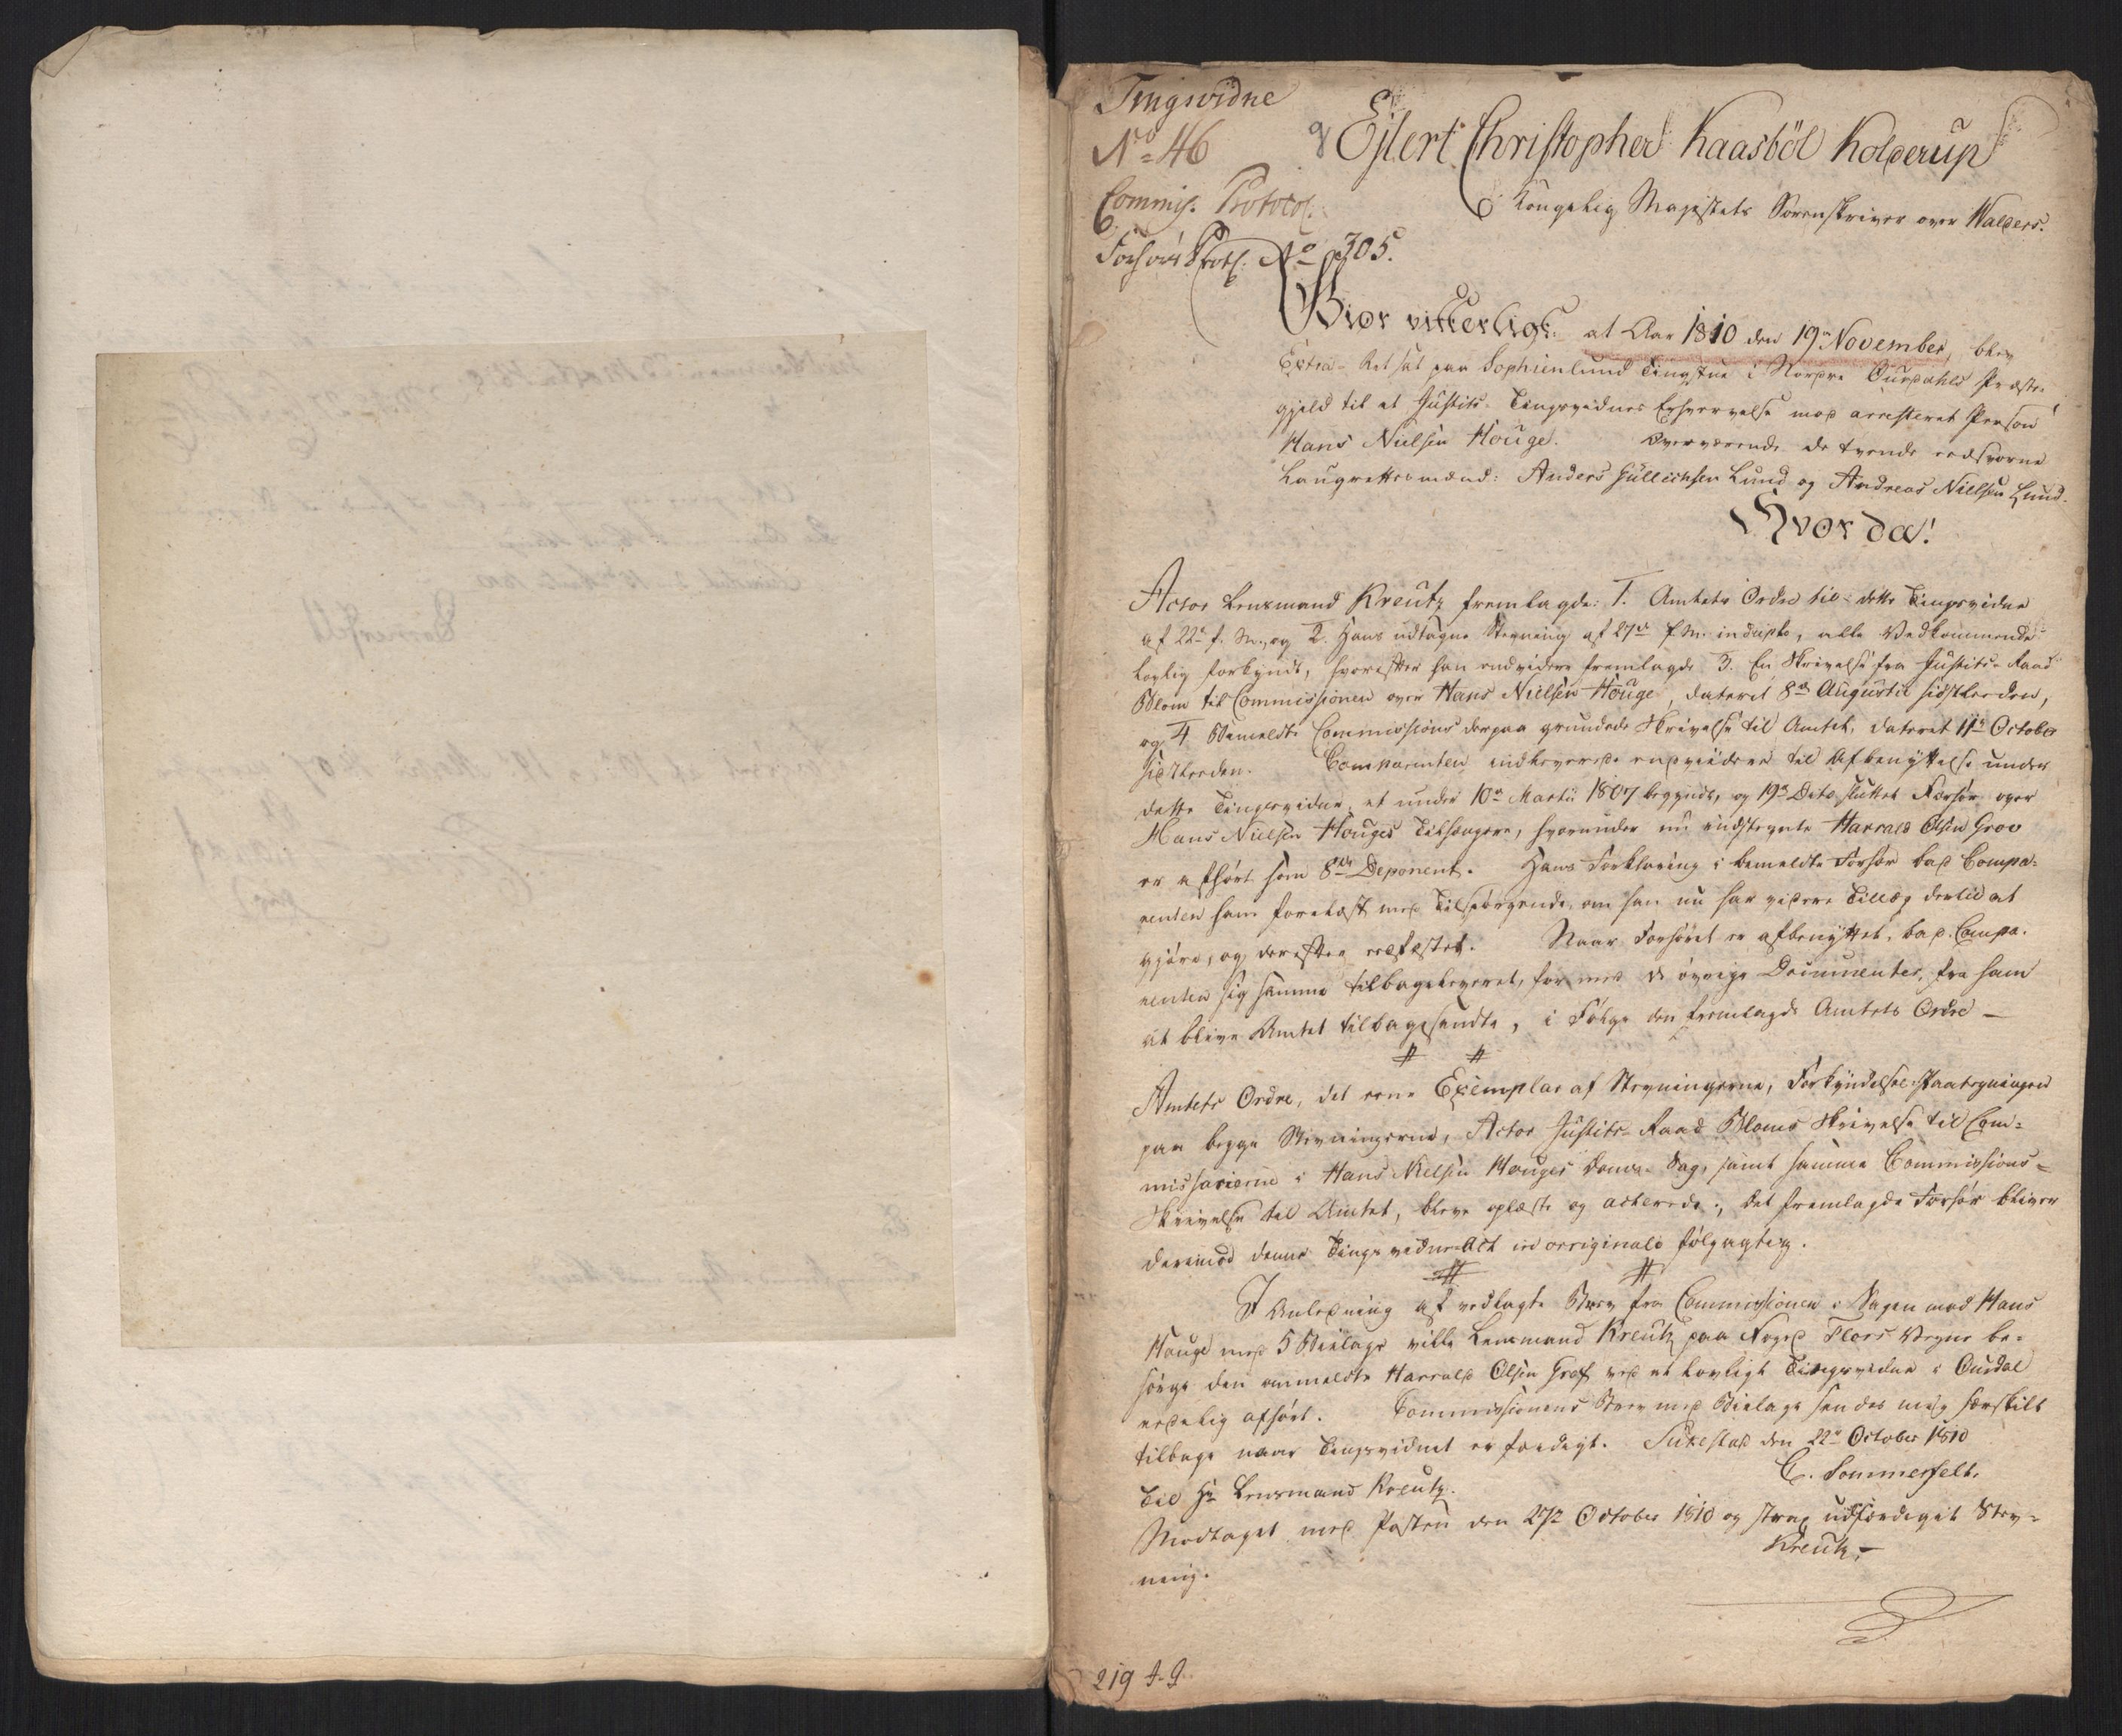 Tingsvidne
No 46
Commis. Protocol.
Forhørs Protl: No 305.
Ejlert Christopher Kaasböl Kolderup
Kongelig Majestets Sorenskriver over Walders.
Giør vitterligt: at Aar 1810 den 19de November, blev
Extra-Ret sat paa Sophienlund Tingstue i Nordre Ourdahls Præste-
gjeld til et Justits-Tingsvidnes Erhvervelse mod arresteret Person
Hans Nielsen Houge. Overværende de tvende eedsvorne
Laugrettesmænd: Anders Gullichsen Lund og Andreas Nielsen Lund.
Hvor da!
Actor Lensmand Kreutz fremlagde: 1. Amtets Ordre til dette Tingsvidne
af 22de f. M., og 2. Hans udtagne Stevning af 27de f. M. in duplo, alle Vedkommende
lovlig forkyndt, hvorefter han endvidere fremlagde 3. En Skrivelse fra Justits-Raad
Blom til Commissionen over Hans Nielsen Houge, dateret 8de Augustii sidstleeden,
og 4 Bemeldte Commissions derpaa grundede Skrivelse til Amtet, dateret 11te October
sidstleeden. Comparenten indleverede endvidere til Afbenyttelse under
dette Tingsvidne, et under 10de Martii 1807 begyndt, og 19de Dito sluttet Forhør over
Hans Nielsen Houges Tilhængere, hvorunder nu indstevnte Harrald Olsen Grov
er afhørt som 8de Deponent. Hans Forklaring i bemeldte Forhør bad Compa-
renten ham forelæst med Tilspørgende, om han nu har videre Tillæg dertil at
gjøre, og derefter eedfæstet. Naar Forhøret er afbenyttet, bad Compa-
renten sig samme tilbageleveret, for med de øvrige Documenter, fra ham
at blive Amtet tilbagesendte, i Følge den fremlagde Amtets Ordre —
# #
Amtets Ordre, det eene Exemplar af Stevningerne, Forkyndelses-Paategningen
paa begge Stevningerne, Actor Justits-Raad Bloms Skrivelse til Com-
missarierne i Hans Nielsen Houges Sag, samt samme Commissions-
Skrivelse til Amtet, bleve oplæste og acterede:, det fremlagde Forhør bliver
derimod denne Tingsvidne-Act in originali følgagtig.
# #
I Anledning af vedlagte Brev fra Commissionen i Sagen mod Hans
Houge med 5 Bielage ville Lensmand Kreutz paa Foged Flors Vegne be-
sørge den ommeldte Harrald Olsen Grof ved et lovligt Tingsvidne i Ourdal
eedelig afhørt. Commissionens Brev med Bielage sendes mig særskilt
tilbage naar Tingsvidnet er færdigt. Sukestad den 22de October 1810
C. Sommerfelt.
Til Hr Lensmand Kreutz.
Modtaget med Posten den 27de October 1810 og strax udfærdiget Stev-
ning.
Kreutz,
219 A. 9.